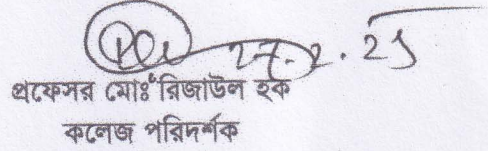 27.2.25
প্রফেসর মোঃ রিজাউল হক
কলেজ পরিদর্শক